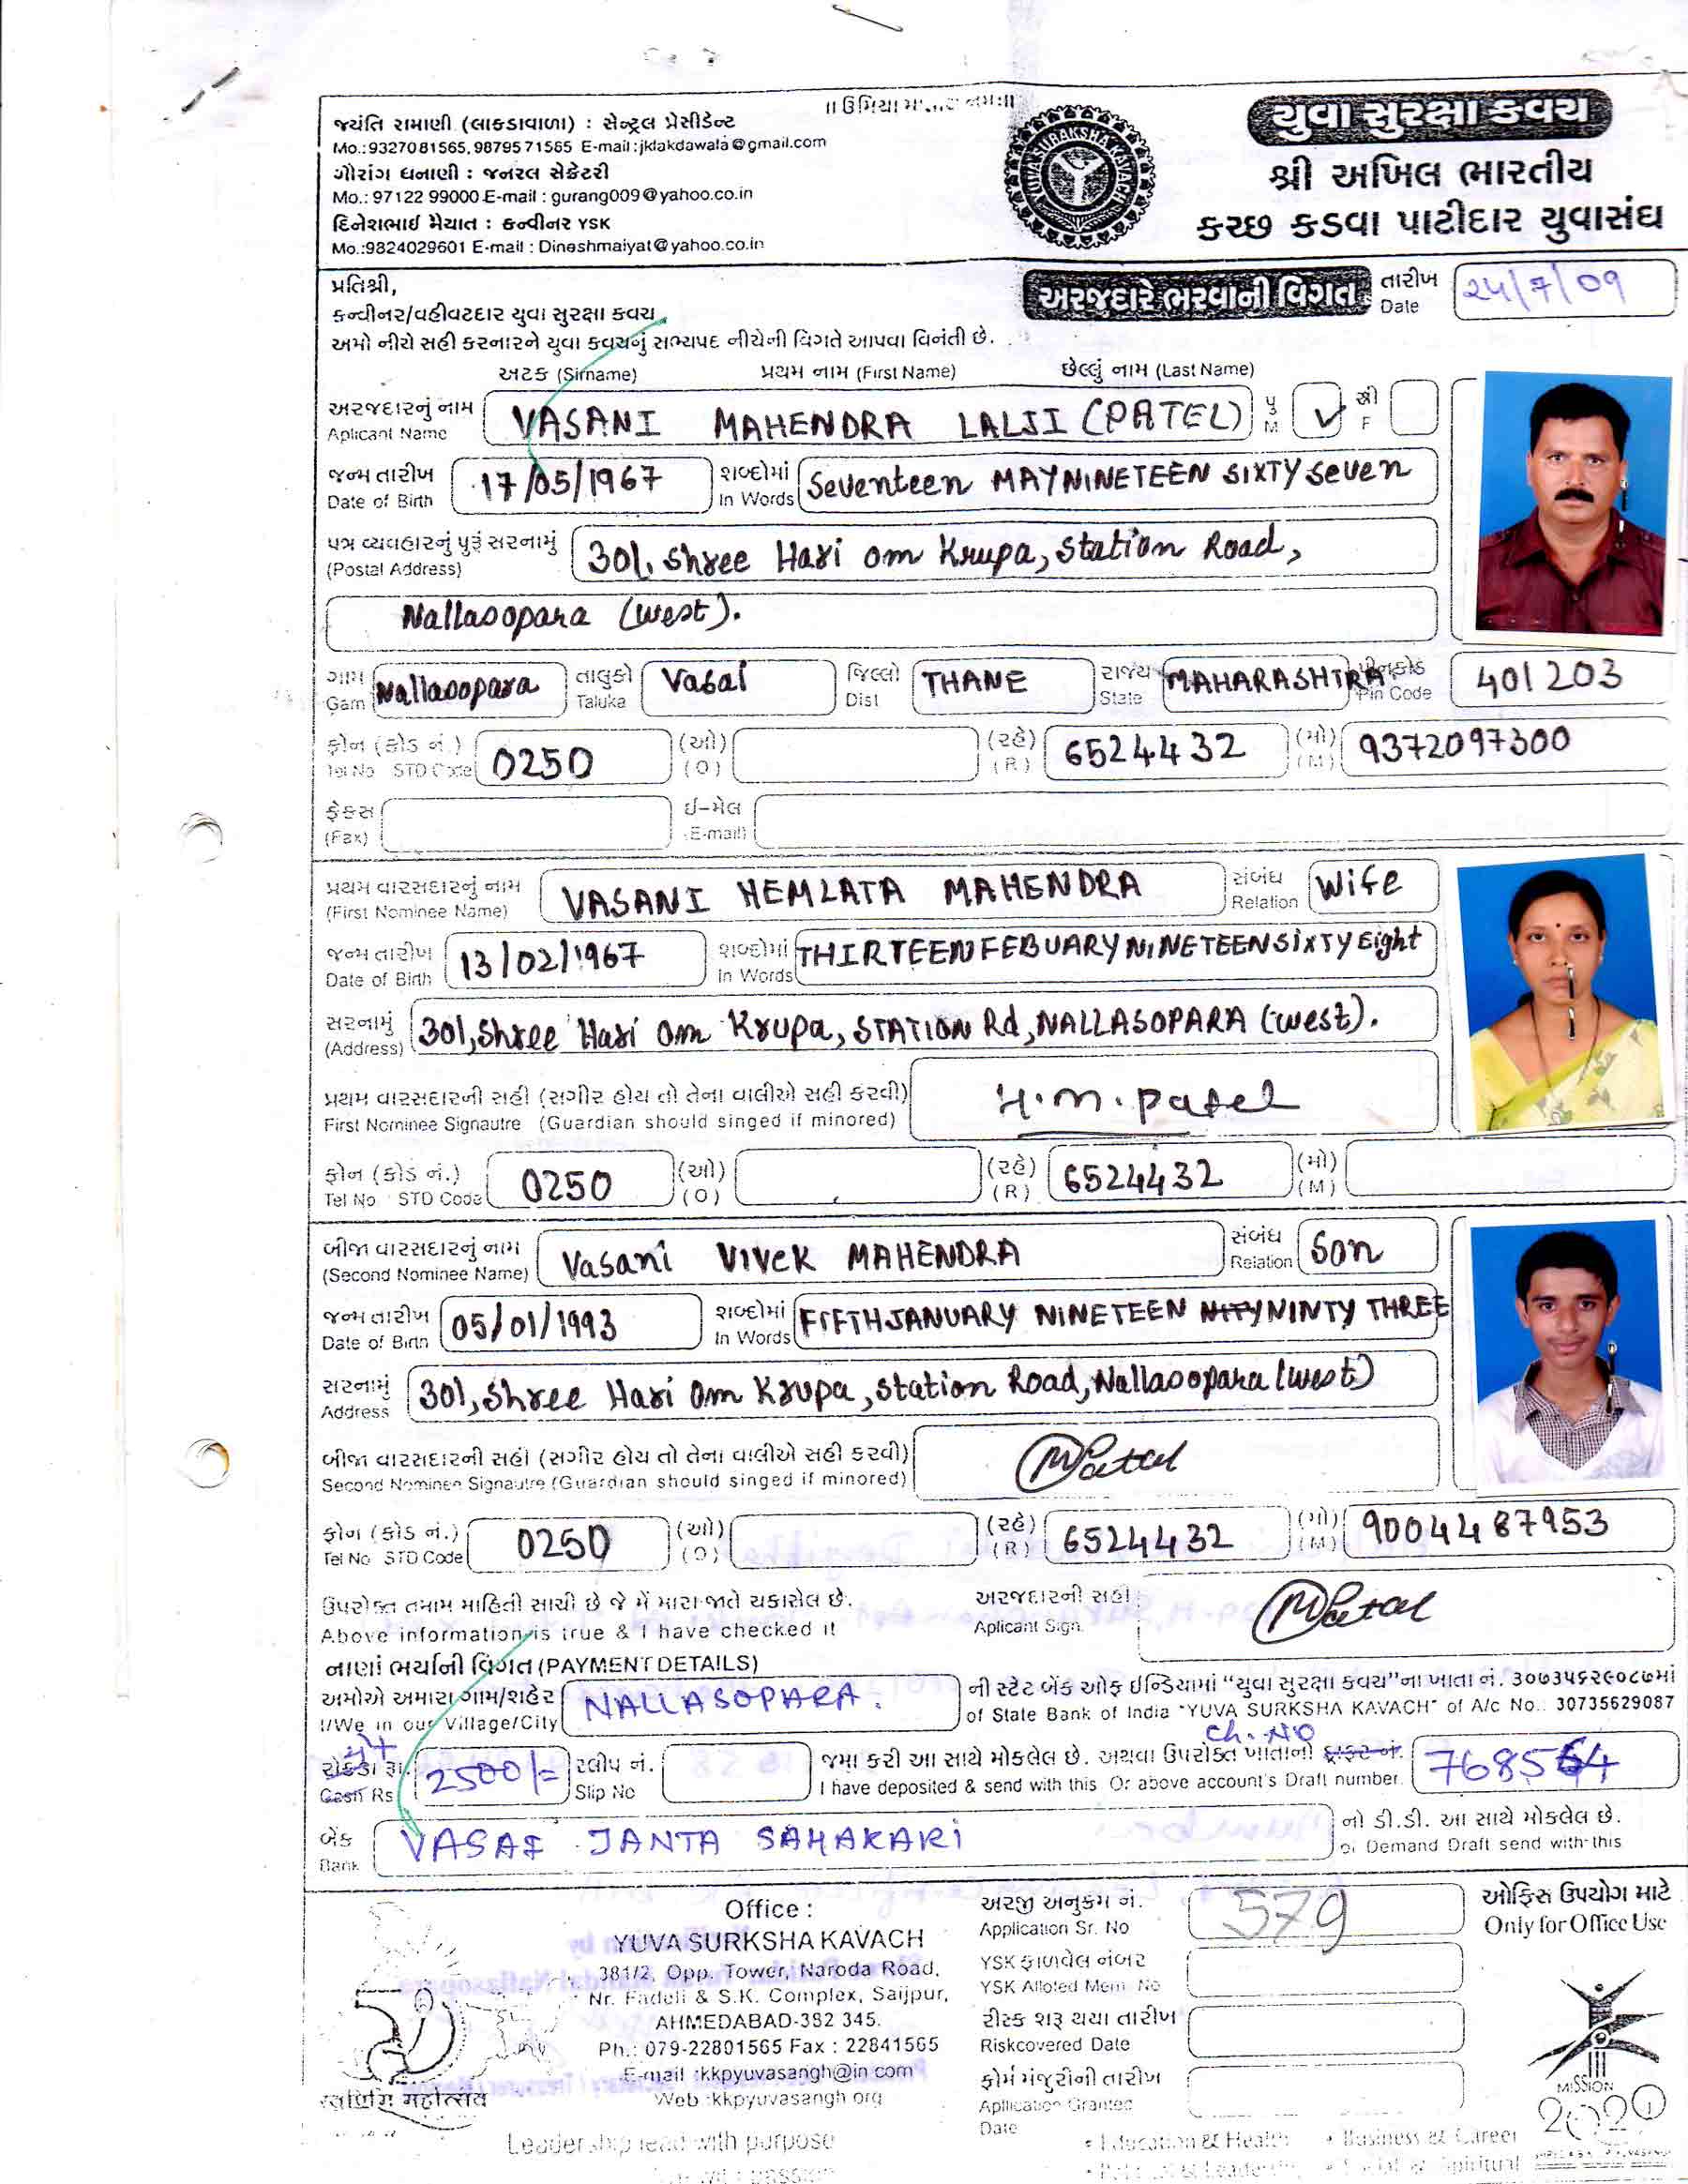 ॥ ઉમિયા
જયંતિ રામાણી (લાકડાવાળા) : સેન્ટ્રલ પ્રેસીડેન્ટ
Mo.:9327081565, 9879571565 E-mail :jklakdawala@gmail.com
ગૌરાંગ ધનાણી : જનરલ સેક્રેટરી
Mo.: 97122 99000 E-mail : gurang009@yahoo.co.in
દિનેશભાઈ મૈયાત : કન્વીનર YSK
Mo.:9824029601 E-mail : Dineshmaiyat@yahoo.co.in
YUVA SURAKSHA KAVACH
યુવા સુરક્ષા કવચ
શ્રી અખિલ ભારતીય
કચ્છ કડવા પાટીદાર યુવાસંઘ
પ્રતિશ્રી,
કન્વીનર/વહીવટદાર યુવા સુરક્ષા કવચ,
અરજદારે ભરવાની વિગત
તારીખ Date 24/7/09
અમો નીચે સહી કરનારને યુવા કવચનું સભ્યપદ નીચેની વિગતે આપવા વિનંતી છે.
અટક (Sirname) પ્રથમ નામ (First Name) છેલ્લું નામ (Last Name)
અરજદારનું નામ Aplicant Name VASANI MAHENDRA LALJI (PATEL) પુ M ✓ સ્ત્રી F
જન્મ તારીખ Date of Birth 17/05/1967 શબ્દોમાં In Words Seventeen MAY NINETEEN SIXTY Seven
પત્ર વ્યવહારનું પુરૂં સરનામું (Postal Address) 301, Shree Hari om Krupa, Station Road,
Nallasopara (west).
ગામ Gam Nallasopara તાલુકો Taluka Vasai જિલ્લો Dist THANE રાજ્ય State MAHARASHTRA પીનકોડ Pin Code 401203
ફોન (કોડ નં.) Tel No STD Code 0250 (ઓ) (O) (રહે) (R) 6524432 (મો) (M) 9372097300
ફેક્સ (Fax) ઈ-મેલ E-mail)
પ્રથમ વારસદારનું નામ (First Nominee Name) VASANI HEMLATA MAHENDRA સંબંધ Relation Wife
જન્મ તારીખ Date of Birth 13/02/1967 શબ્દોમાં In Words THIRTEEN FEBUARY NINETEEN SIXTY Eight
સરનામું (Address) 301, Shree Hari Om Krupa, STATION Rd, NALLASOPARA (west).
પ્રથમ વારસદારની સહી (સગીર હોય તો તેના વાલીએ સહી કરવી) H.M.Patel
First Nominee Signautre (Guardian should singed if minored)
ફોન (કોડ નં.) Tel No STD Code 0250 (ઓ) (O) (રહે) (R) 6524432 (મો) (M)
બીજા વારસદારનું નામ (Second Nominee Name) Vasani Vivek MAHENDRA સંબંધ Relation Son
જન્મ તારીખ Date of Birth 05/01/1993 શબ્દોમાં In Words FIFTH JANUARY NINETEEN NINTY THREE
સરનામું Address 301, Shree Hari Om Krupa, Station Road, Nallasopara (west)
બીજા વારસદારની સહી (સગીર હોય તો તેના વાલીએ સહી કરવી) MPatel
Second Nominee Signautre (Guardian should singed if minored)
ફોન (કોડ નં.) Tel No STD Code 0250 (ઓ) (O) (રહે) (R) 6524432 (મો) (M) 9004487953
ઉપરોક્ત તમામ માહિતી સાચી છે જે મેં મારા જાતે ચકાસેલ છે. અરજદારની સહી
Above information is true & I have checked it Aplicant Sign. MPatel
નાણાં ભર્યાની વિગત (PAYMENT DETAILS)
અમોએ અમારા ગામ/શહેર NALLASOPARA. ની સ્ટેટ બેંક ઓફ ઈન્ડિયામાં "યુવા સુરક્ષા કવચ"ના ખાતા નં. ૩૦૭૩૫૬૨૯૦૮૭માં
I/We in our Village/City of State Bank of India "YUVA SURKSHA KAVACH" of A/c No.. 30735629087
Ch. NO
રોકડા રૂા. 2500/= સ્લીપ નં. જમા કરી આ સાથે મોકલેલ છે. અથવા ઉપરોક્ત ખાતાનો ડ્રાફ્ટ નં. 768564
Cash Rs Slip No I have deposited & send with this Or above account's Draft number.
બેંક Bank VASAI JANTA SAHAKARI નો ડી.ડી. આ સાથે મોકલેલ છે.
of Demand Draft send with this
Office :
YUVA SURKSHA KAVACH
381/2, Opp. Tower, Naroda Road,
Nr. Fadeli & S.K. Complex, Saijpur,
AHMEDABAD-382 345.
Ph.: 079-22801565 Fax : 22841565
E-mail :kkpyuvasangh@in.com
Web :kkpyuvasangh.org
અરજી અનુક્રમ નં. Application Sr. No 579
YSK ફાળવેલ નંબર YSK Alloted Mem. No
રીસ્ક શરૂ થયા તારીખ Riskcovered Date
ફોર્મ મંજુરીની તારીખ Apllication Granted Date
ઓફિસ ઉપયોગ માટે
Only for Office Use
महोत्सव
MISSION 2020
Leadership lead with purpose
• Education & Health • Business & Career
Spiritual